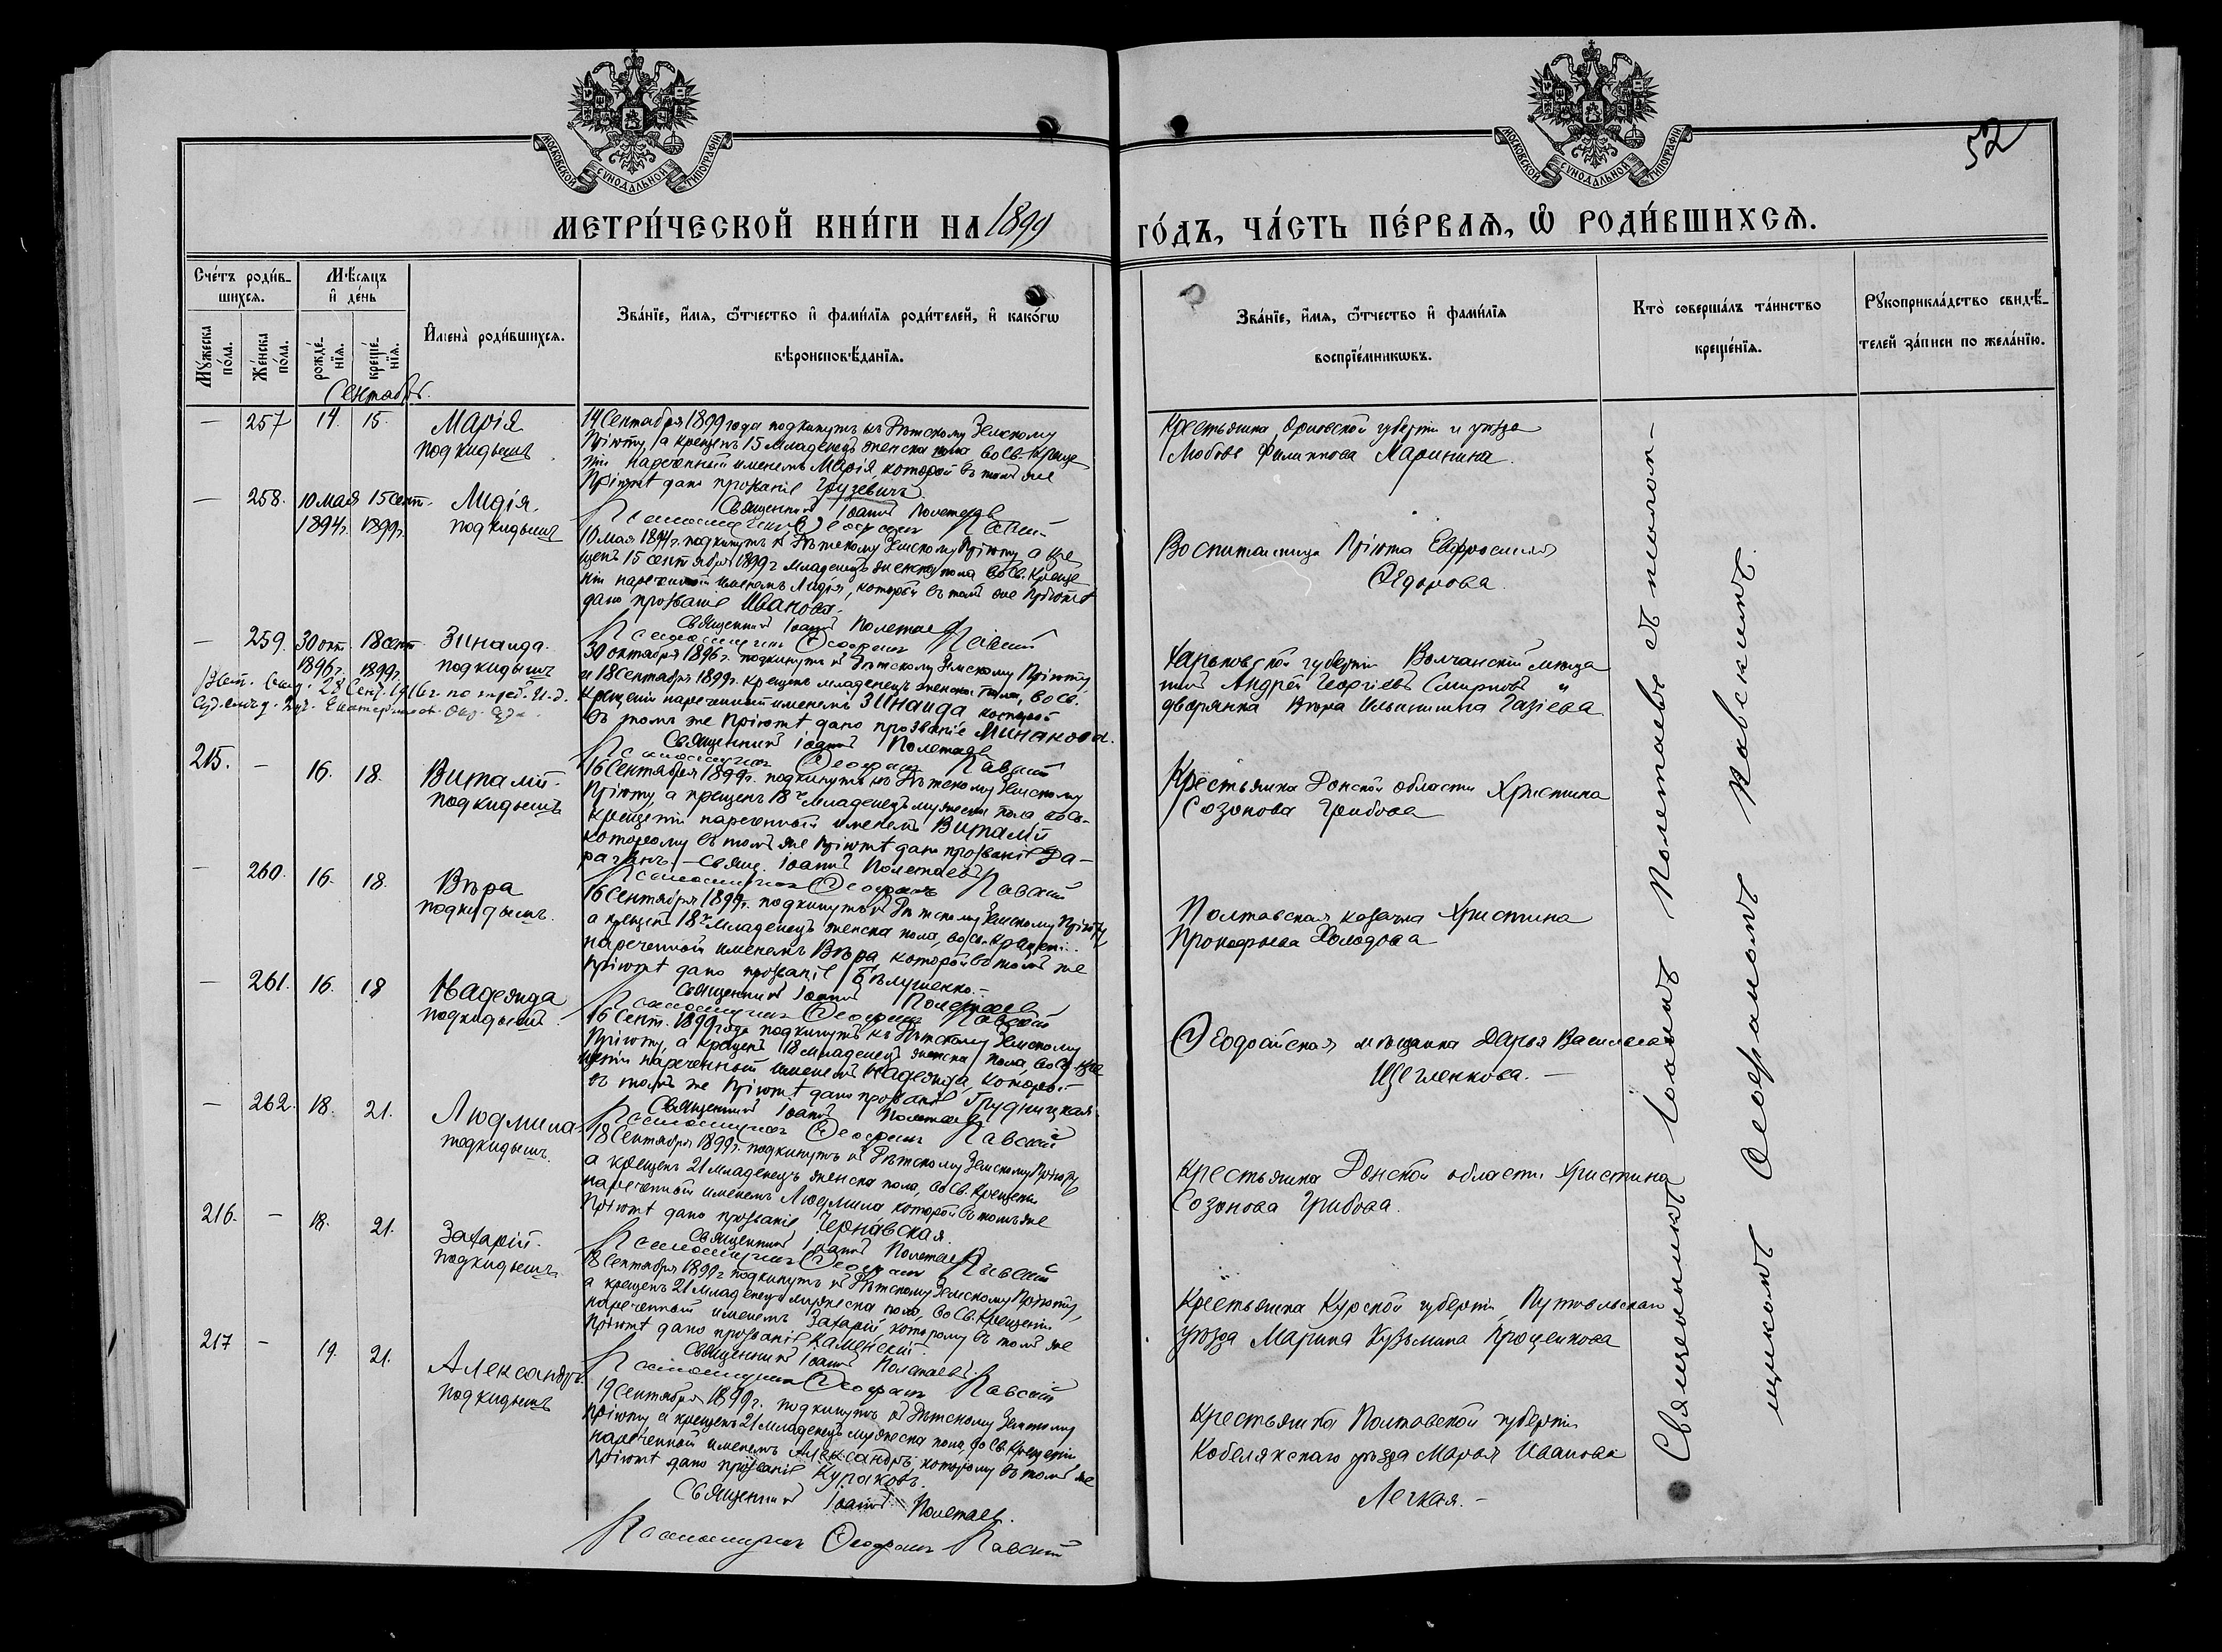 МОСКОВСКОЙ СѴНОДАЛЬНОЙ ТИПОГРАФІИ
МОСКОВСКОЙ СѴНОДАЛЬНОЙ ТИПОГРАФІИ
52
МЕТРИ́ЧЕСКОЙ КНИ́ГИ НА 1899 ГО́ДЪ, ЧА́СТЬ ПЕ́РВАѦ, Ѡ҆ РОДИ́ВШИХСѦ.
Сче́тъ роди́в-
шихсѧ.
Мѣ́сѧцъ
и҆ де́нь
Мꙋ́жеска по́ла.
Же́нска по́ла.
рожде́-
нїѧ.
креще́-
нїѧ.
И҆мена̀ роди́вшихсѧ.
Зва́нїе, и҆́мѧ, ѻ҆́тчество и҆ фами́лїѧ роди́телей, и҆ како́гѡ
вѣроисповѣ́данїѧ.
Зва́нїе, и҆́мѧ, ѻ҆́тчество и҆ фами́лїѧ
воспрїе́мникѡвъ.
Кто̀ соверша́лъ та́инство
креще́нїѧ.
Рꙋкоприкла́дство свидѣ́-
телей за́писи по жела́нїю.
Сентябрь.
— 257 14. 15. Марія
подкидышъ.
14 Сентября 1899 года подкинутъ къ Дѣтскому Земскому
Пріюту, а крещенъ 15 Младенецъ женска пола во Св. Креще
ніи нареченный именемъ Марія которой въ томъ же
Пріютѣ дано прозваніе Грузевичъ.
Священникъ Іоаннъ Полетаевъ
Псаломщикъ Ѳеофанъ Павскій
Крестьянка Орловской губерніи и уѣзда
Любовь Филиппова Маринина.
— 258. 10 мая 15 сент. Лидія.
1894 г. 1899 г. подкидышъ
10 мая 1894 г. подкинутъ къ Дѣтскому Земскому Пріюту а кре
щенъ 15 сентября 1899 г младенецъ женска пола во Св. Креще
ніи нареченный именемъ Лидія, которой въ томъ же Пріютѣ
дано прозваніе Иванова.
Священникъ Іоаннъ Полетаевъ
Псаломщикъ Ѳеофанъ Павскій
Воспитанница Пріюта Евфросинія
Ѳедорова.
— 259. 30 окт. 18 сент. Зинаида.
1896 г. 1899 г. подкидышъ
28 Сент.
30 октября 1896 г. подкинутъ къ Дѣтскому Земскому Пріюту
а 18 сентября 1899 г. крещенъ младенецъ женска пола, во Св.
Крещеніи нареченный именемъ Зинаида которой
въ томъ же Пріютѣ дано прозваніе Минакова.
Священникъ Іоаннъ Полетаевъ
Псаломщикъ Ѳеофанъ Павскій
Харьковской губерніи Волчанскій мѣща
нинъ Андрей Георгіевъ Смирновъ и
дворянка Вѣра Ильинишна Газіева
215. — 16. 18. Виталій.
подкидышъ
16 Сентября 1899 г. подкинутъ къ Дѣтскому Земскому
Пріюту, а крещенъ 18 г Младенецъ мужеска пола во Св.
Крещеніи нареченный именемъ Виталій
которому въ томъ же Пріютѣ дано прозваніе Да-
раганъ. — Свящ. Іоаннъ Полетаевъ
Псаломщикъ Ѳеофанъ Павскій
Крестьянка Донской области Христина
Созонова Грибова
— 260. 16. 18. Вѣра
подкидышъ.
16 Сентября 1899 г. подкинутъ къ Дѣтскому Земскому Пріюту
а крещенъ 18 г Младенецъ женска пола, во Св. Крещеніи
нареченный именемъ Вѣра которой въ томъ же
Пріютѣ дано прозваніе Бѣлушенко. —
Священникъ Іоаннъ Полетаевъ
Псаломщикъ Ѳеофанъ Павскій
Полтавская козачка Христина
Прокофьева Холодова
— 261. 16. 18 Надежда
подкидышъ.
16 Сент. 1899 года подкинутъ къ Дѣтскому Земскому
Пріюту, а крещенъ 18 младенецъ женска пола, во Св. Кре
щеніи нареченный именемъ Надежда, которой
въ томъ же Пріютѣ дано прозваніе Грудницкая.
Священникъ Іоаннъ Полетаевъ
Псаломщикъ Ѳеофанъ Павскій
Ѳеодосійская мѣщанка Дарья Васильева
Щегленкова. —
— 262. 18. 21. Людмила
подкидышъ.
18 Сентября 1899 г. подкинутъ къ Дѣтскому Земскому Пріюту
а крещенъ 21 Младенецъ женска пола, во Св. Крещеніи
нареченный именемъ Людмила которой въ томъ же
Пріютѣ дано прозваніе Чернавская.
Священникъ Іоаннъ Полетаевъ
Псаломщикъ Ѳеофанъ Павскій
Крестьянка Донской области Христина
Созонова Грибова.
216. — 18. 21. Захарій.
подкидышъ
18 Сентября 1899 г подкинутъ къ Дѣтскому Земскому Пріюту,
а крещенъ 21 Младенецъ мужеска пола, во Св. Крещеніи
нареченный именемъ Захарій которому въ томъ же
Пріютѣ дано прозваніе Каменскій.
Священникъ Іоаннъ Полетаевъ.
Псаломщикъ Ѳеофанъ Павскій
Крестьянка Курской губерніи, Путивльскаго
уѣзда Марина Кузьмина Прощенкова
217 — 19. 21. Александръ
подкидышъ
19 Сентября 1899 г. подкинутъ къ Дѣтскому Земскому
Пріюту а крещенъ 21 Младенецъ мужеска пола, во Св. Крещеніи
нареченный именемъ Александръ, которому въ томъ же
Пріютѣ дано прозваніе Кураковъ.
Священникъ Іоаннъ Полетаевъ.
Псаломщикъ Ѳеофанъ Павскій
Крестьянка Полтавской губерніи
Кобелякскаго уѣзда Марья Иванова
Легкая. —
Священникъ Іоаннъ Полетаевъ съ псалом-
щикомъ Ѳеофаномъ Павскимъ.